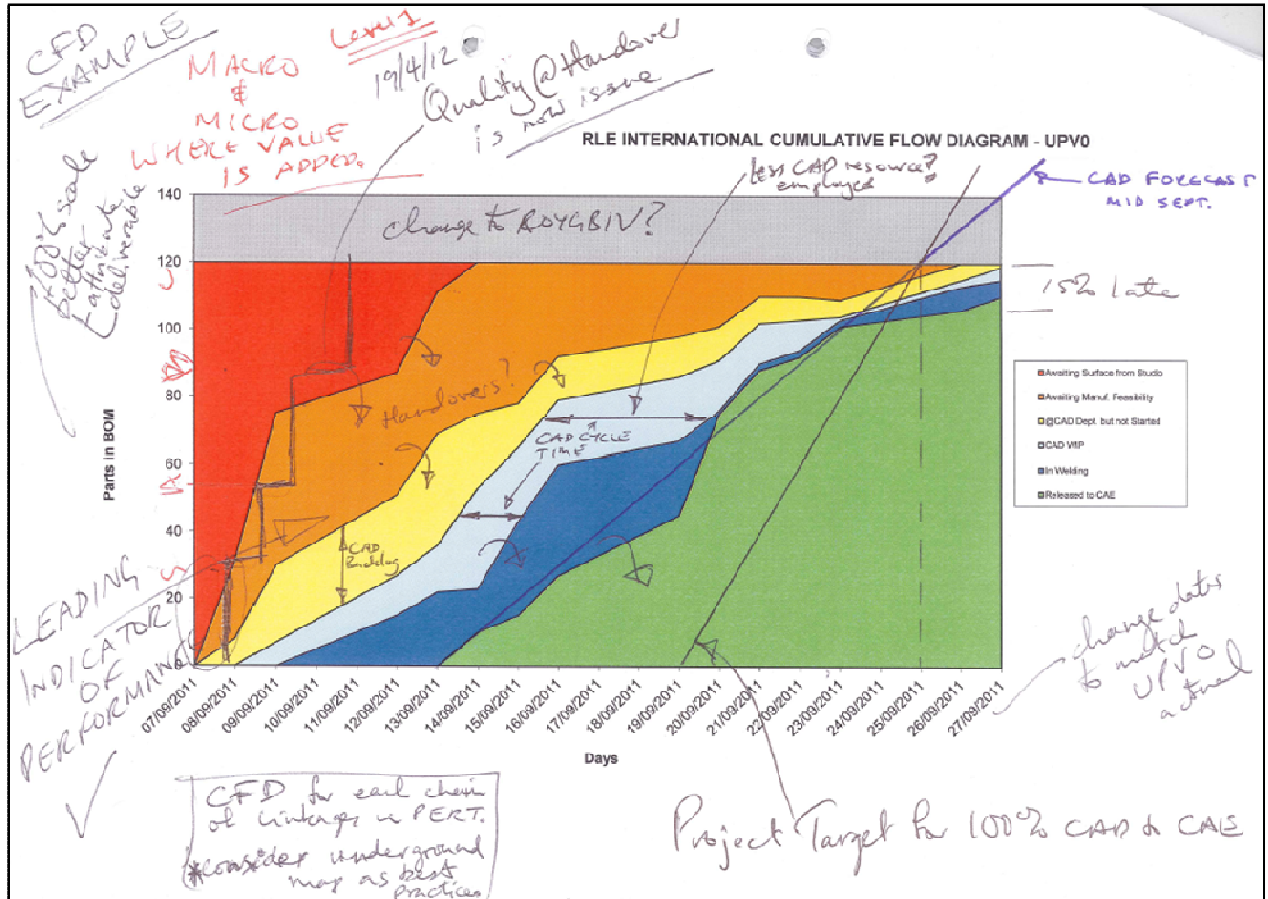 CFD
EXAMPLE
MACRO
&
MICRO
WHERE VALUE
IS ADDED.
Level 1
19/4/12
Quality @ Handover
is now issue
RLE INTERNATIONAL CUMULATIVE FLOW DIAGRAM - UPV0
less CAD resource?
employed
CAD FORECAST
MID SEPT.
100% scale
better
attribute
deliverable
change to ROYGBIV?
15% late
Handovers?
CAD CYCLE
TIME
CAD
Backlog
Parts in BOM
140
120
100
80
60
40
20
0
Awaiting Surface from Studio
Awaiting Manuf. Feasibility
@CAD Dept. but not Started
CAD WIP
In Welding
Released to CAE
07/09/2011
08/09/2011
09/09/2011
10/09/2011
11/09/2011
12/09/2011
13/09/2011
14/09/2011
15/09/2011
16/09/2011
17/09/2011
18/09/2011
19/09/2011
20/09/2011
21/09/2011
22/09/2011
23/09/2011
24/09/2011
25/09/2011
26/09/2011
27/09/2011
Days
LEADING
INDICATOR
OF
PERFORMANCE
change dates
to match
UPV0
actual
CFD for each chain
of linkages in PERT.
*consider underground
map as best
practices
Project Target for 100% CAD to CAE